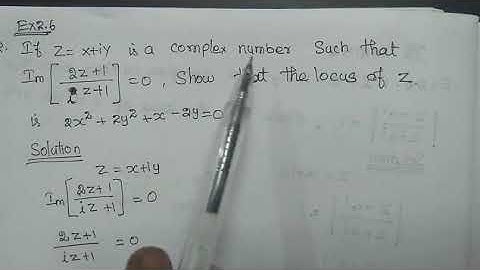 Ex 2.6
2. If Z = x+iy is a complex number Such that
Im [ 2z+1 / iz+1 ] = 0, Show that the locus of z
is 2x² + 2y² + x - 2y = 0
Solution
z = x+iy
Im [ 2z+1 / iz+1 ] = 0
2z+1 / iz+1 = 0